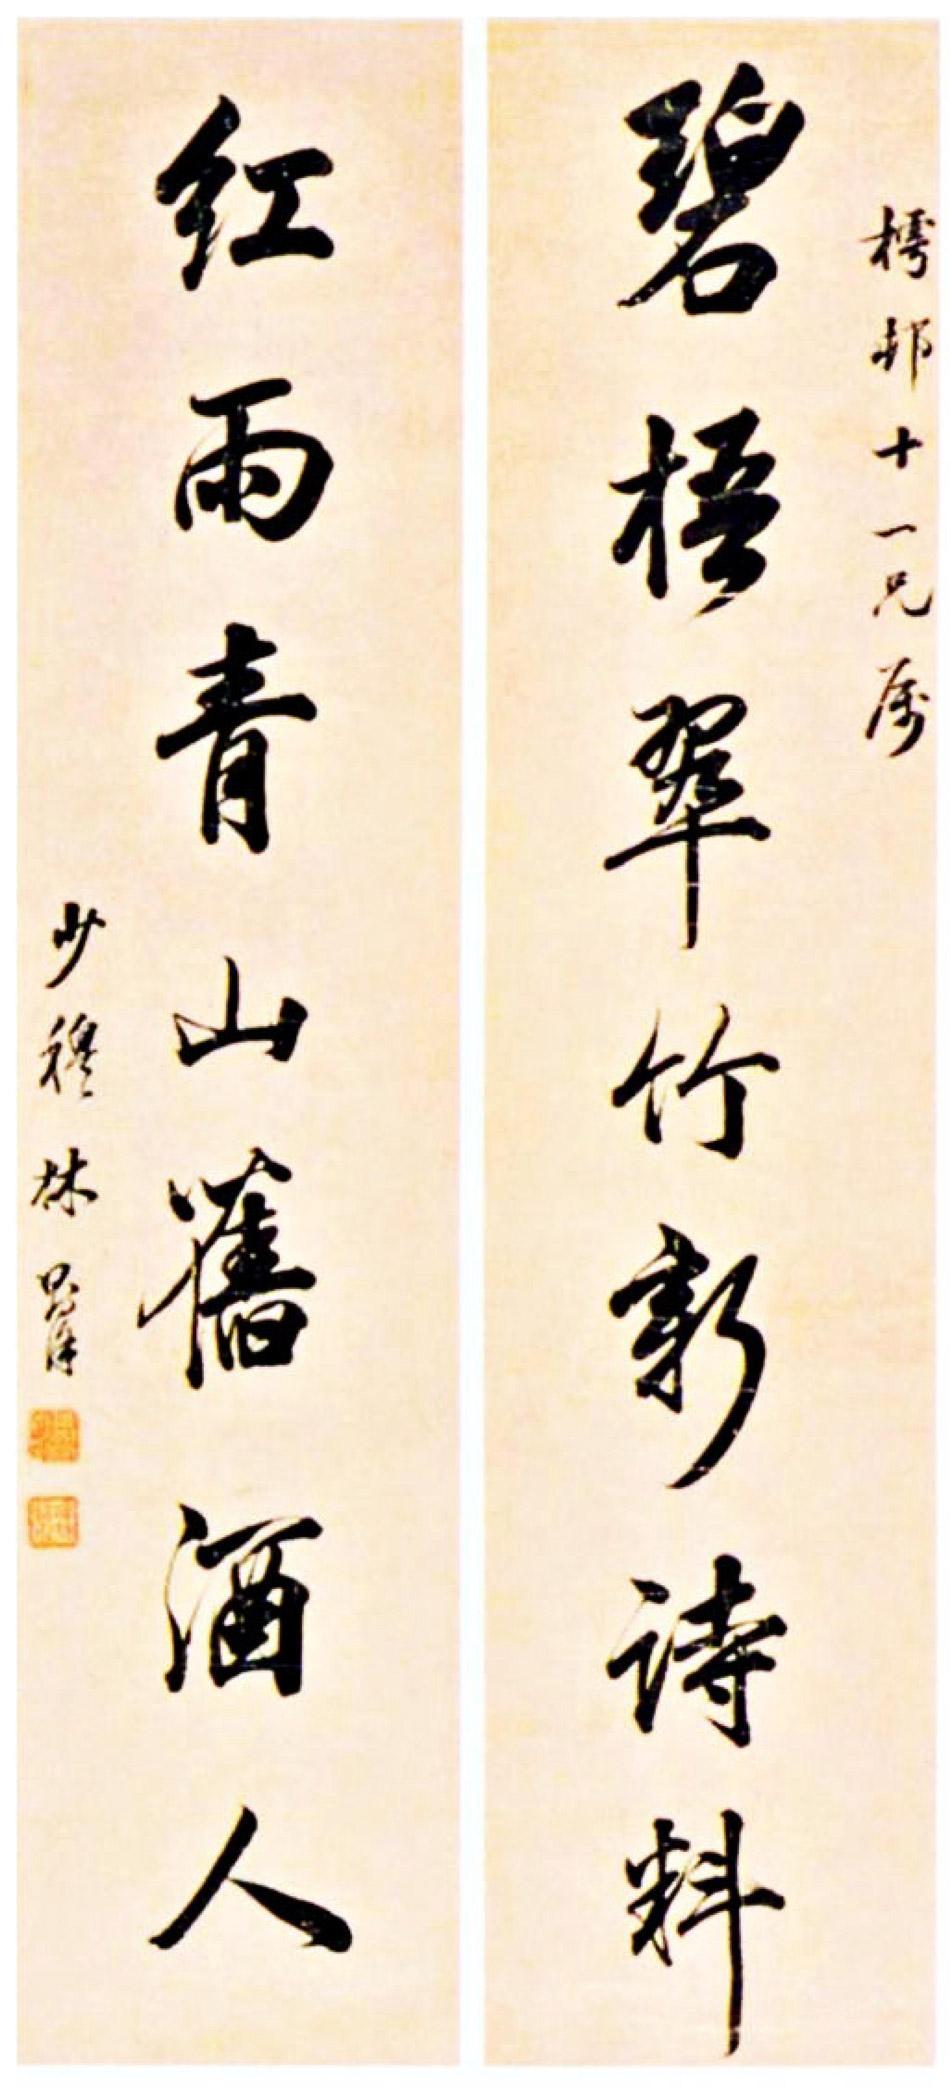 樗邨十一兄屬
碧梧翠竹新詩料
紅雨青山舊酒人
少穆林則徐